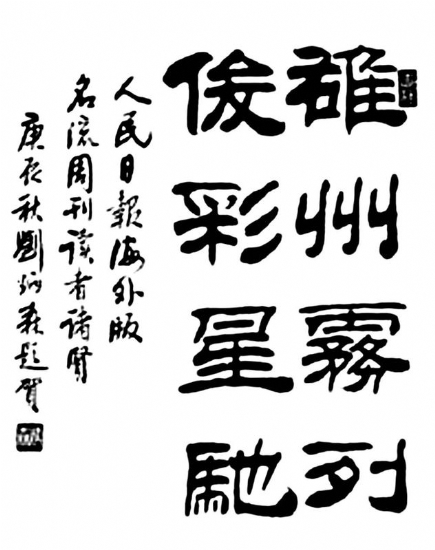 雄州霧列
俊彩星馳
人民日報海外版
名流周刊读者诸贤
庚辰秋劉炳森题賀